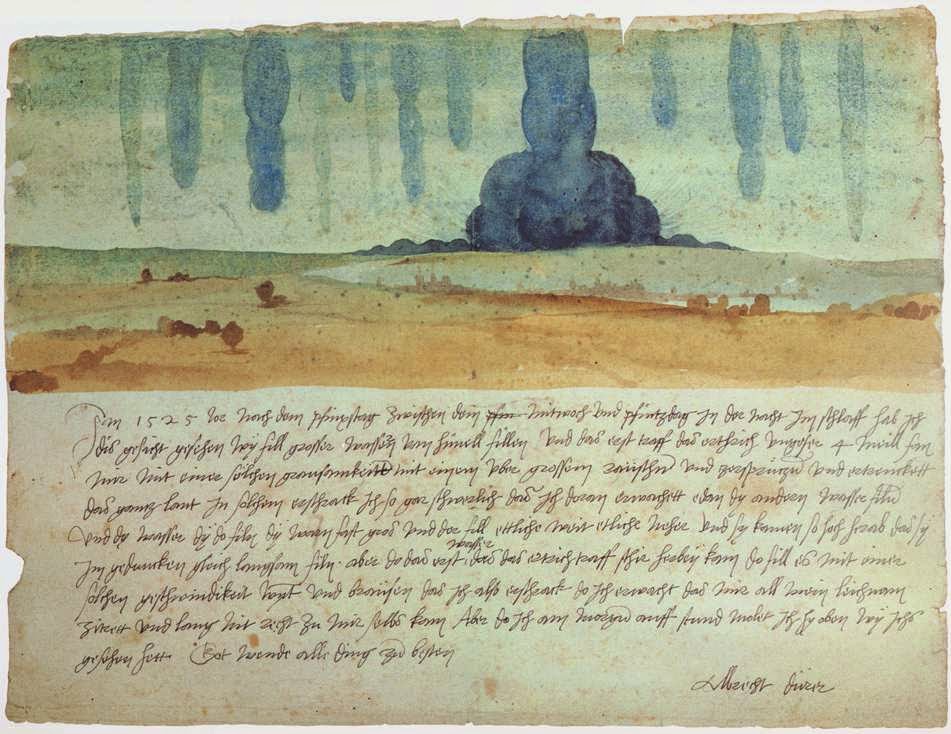 Im 1525 Jor nach dem pfinxstag zwischen dem pfin mitwoch und pfintzdag in der nacht im schlaff hab ich
dis gesicht gesehen wy fill grosser wassern vom himell fillen Und das erst traff das erthrich ungefer 4 meill fan
mir mit einer sölchen grausamkeitt mit einem uber grossem raüschn und zersprützn und ertrenckett
das gantz lant In sölchem erschrack ich so gar schwerlich das ich doran erwachett edan dy andern wasser filn
Und dy wasser dy do filn dy warn fast gros und der fill etliche weit etliche neher und sy kamen so hoch herab das sy
im geduncken gleich langsam filn. aber do das erst wasser das das ertrich traff schir herbey kam do fill es mit einer
sölchen geschwindikeit wynt und braüsen das ich also erschrack do ich erwacht das mir all mein leichnam
zitrett und lang nit recht zu mir selbs kam Aber do ich am morgn auff stund molet ich hy oben wy ichs
gesehen hett. Got wende alle ding zu besten
Albrecht dürer